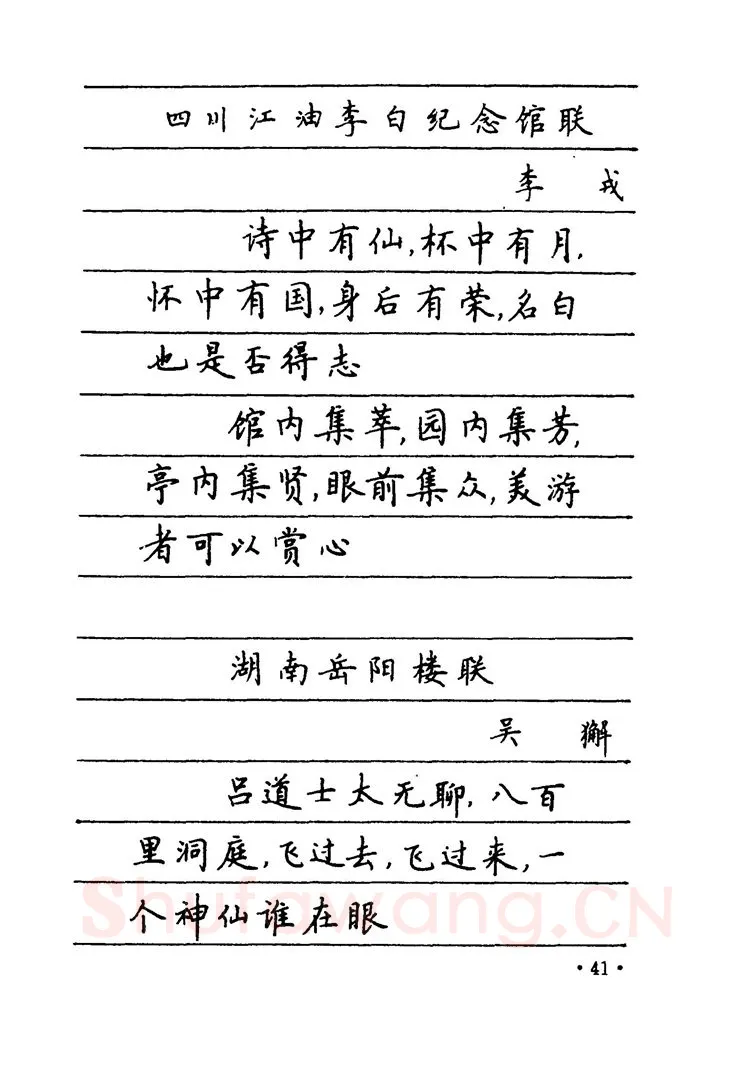 四川江油李白纪念馆联
李 戎
诗中有仙,杯中有月,
怀中有国,身后有荣,名白
也是否得志
馆内集萃,园内集芳,
亭内集贤,眼前集众,美游
者可以赏心
湖南岳阳楼联
吴 獬
吕道士太无聊,八百
里洞庭,飞过去,飞过来,一
个神仙谁在眼
Shufawang.CN
·41·